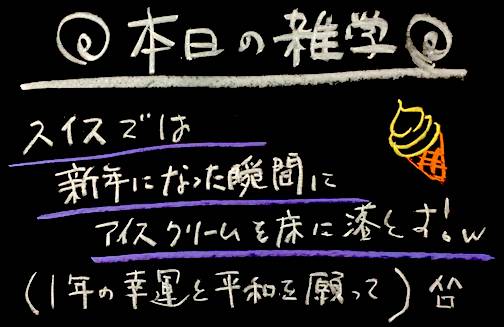 本日の雑学
スイスでは
新年になった瞬間に
アイスクリームを床に落とす!w
(1年の幸運と平和を願って)